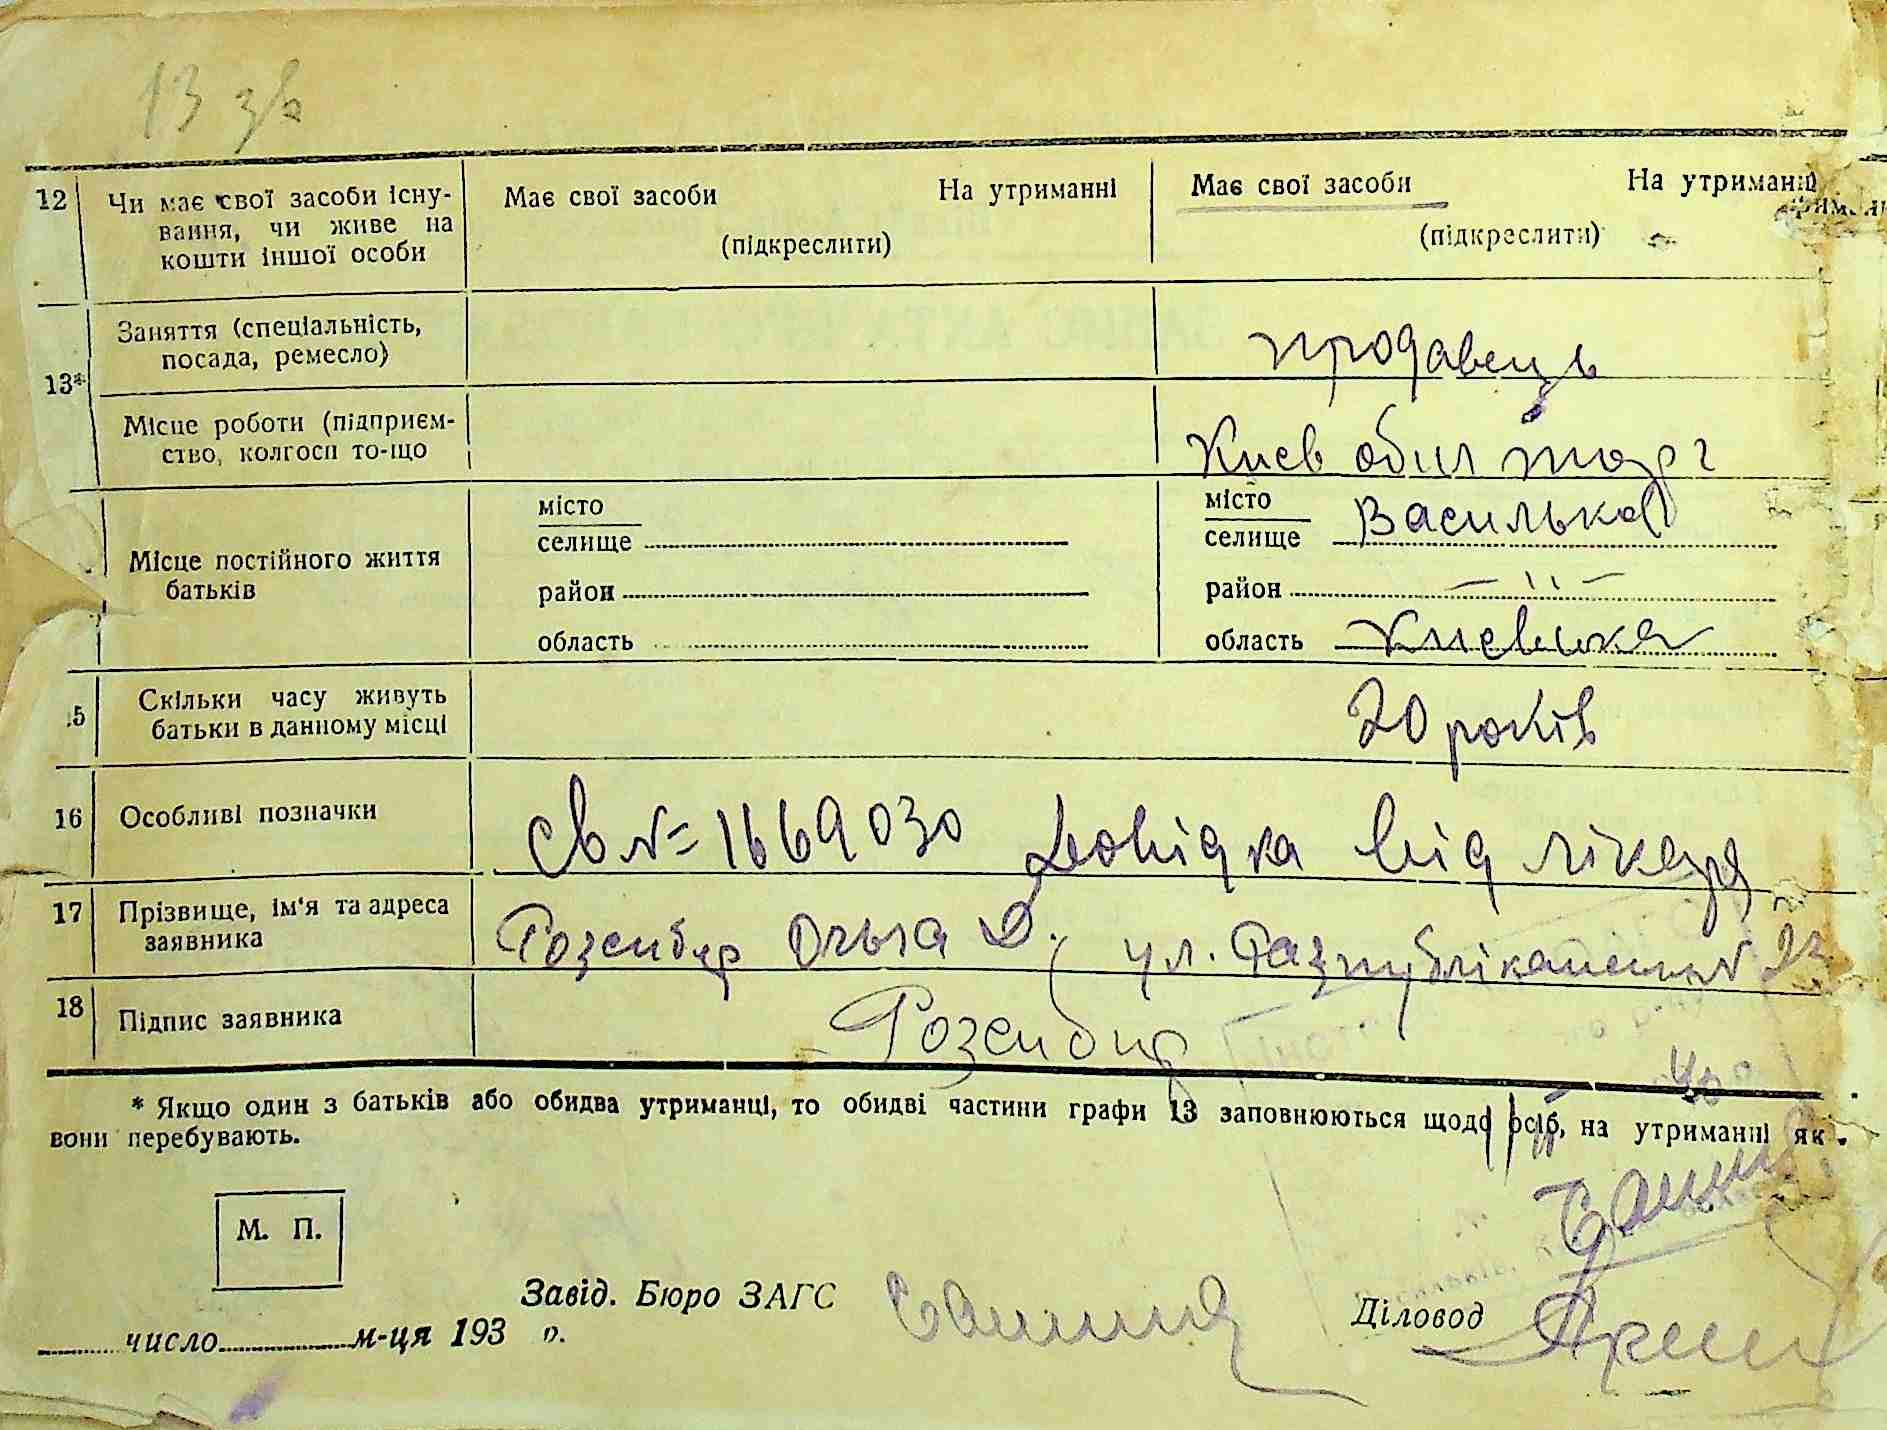 13 зв
12 Чи має свої засоби існу- Має свої засоби На утриманні Має свої засоби На утриманні
вання, чи живе на
кошти іншої особи (підкреслити) (підкреслити)
Заняття (спеціальність,
посада, ремесло) продавець
13*
Місце роботи (підприєм-
ство, колгосп то-що Киев обил торг
місто місто Васильков
селище селище
Місце постійного життя
батьків район район — " —
область область Киевська
5 Скільки часу живуть
батьки в данному місці 20 років
16 Особливі позначки Св № 1669030 Довідка від лікаря
17 Прізвище, ім'я та адреса
заявника Розенбир Ольга Д., ул. 23
18 Підпис заявника Розенбир
* Якщо один з батьків або обидва утриманці, то обидві частини графи 13 заповнюються щодо осіб, на утриманні як
вони перебувають.
М. П.
Завід. Бюро ЗАГС Діловод
число м-ця 193 р.